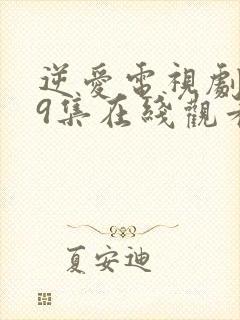 逆愛電視劇
9集在綫觀看
夏安迪